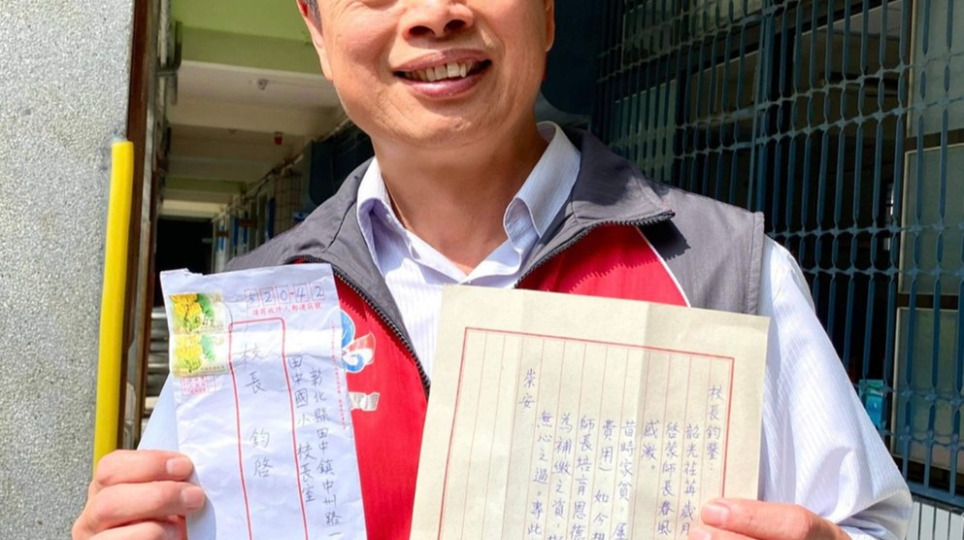 52042
彰化縣田中鎮中州路一
田中國小校長室
校長 鈞啓
校長鈞鑒：
韶光荏苒歲月
啓蒙師長春風
感激。
昔時家貧，
費用）如今想
師長培育恩德
為補繳之資，
無心之過。專此
崇安